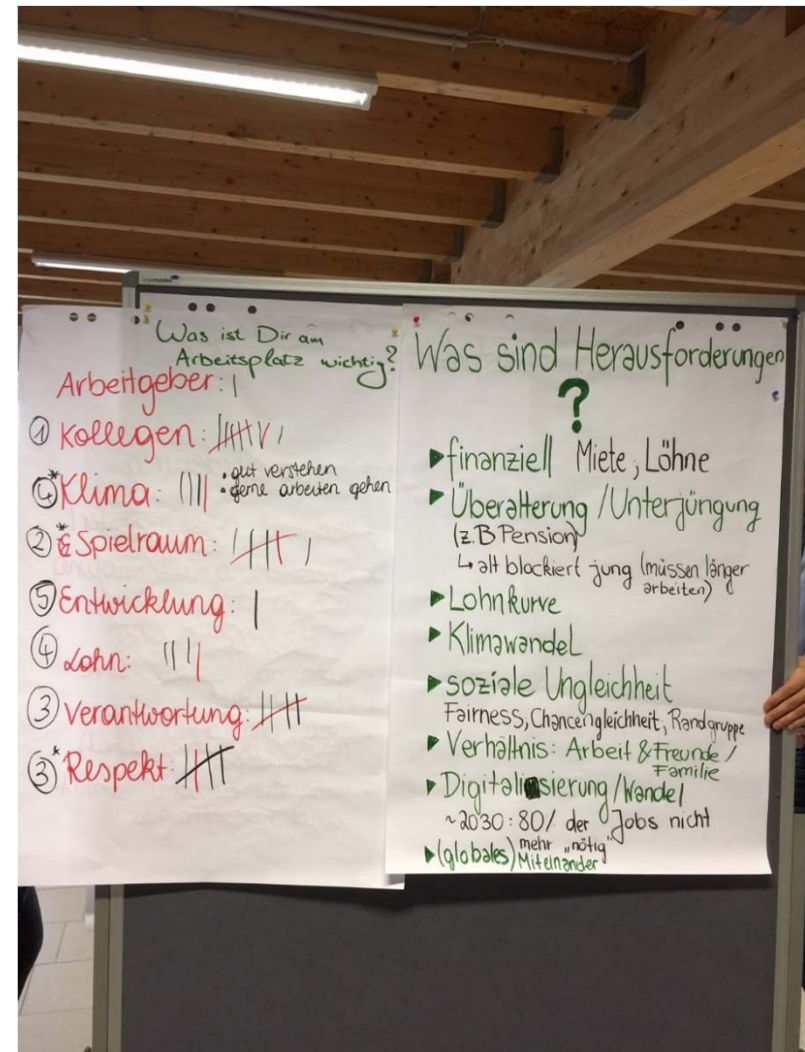 Was ist Dir am
Arbeitsplatz wichtig?
Arbeitgeber: |
① Kollegen:
④* Klima: ||||
• gut verstehen
• gerne arbeiten gehen
②* & Spielraum:
⑤ Entwicklung: |
④ Lohn: ||||
③ Verantwortung:
③* Respekt:
Was sind Herausforderungen
?
▶ finanziell Miete, Löhne
▶ Überalterung / Unterjüngung
(z.B Pension)
↳ alt blockiert jung (müssen länger
arbeiten)
▶ Lohnkurve
▶ Klimawandel
▶ soziale Ungleichheit
Fairness, Chancengleichheit, Randgruppe
▶ Verhältnis: Arbeit & Freunde /
Familie
▶ Digitalisierung / Wandel
~2030: 80% der Jobs nicht
mehr „nötig"
▶ (globales) Miteinander